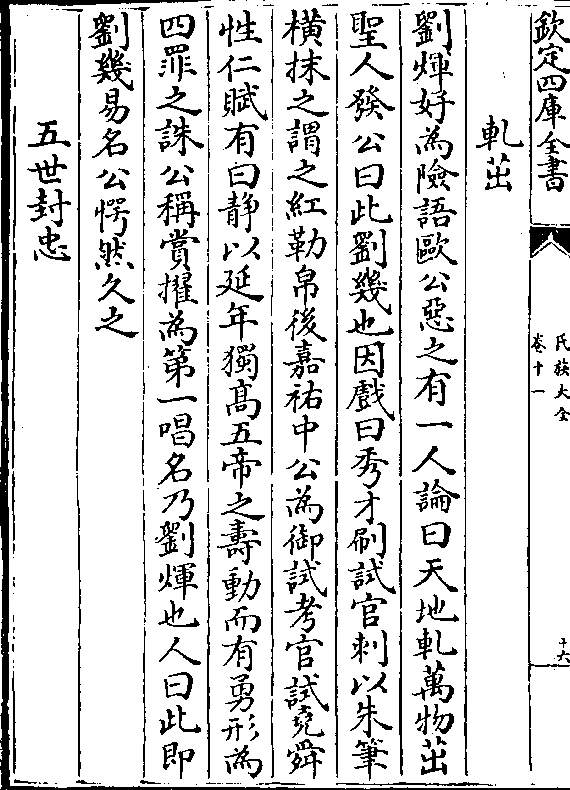 欽定四庫全書
氏族大全
卷十一
十六
軋茁
劉煇好為險語歐公惡之有一人論曰天地軋萬物茁
聖人發公曰此劉幾也因戲曰秀才刷試官刺以朱筆
橫抹之謂之紅勒帛後嘉祐中公為御試考官試堯舜
性仁賦有曰静以延年獨髙五帝之夀動而有勇形為
四罪之誅公稱賞擢為第一唱名乃劉煇也人曰此即
劉幾易名公愕然久之
五世封忠